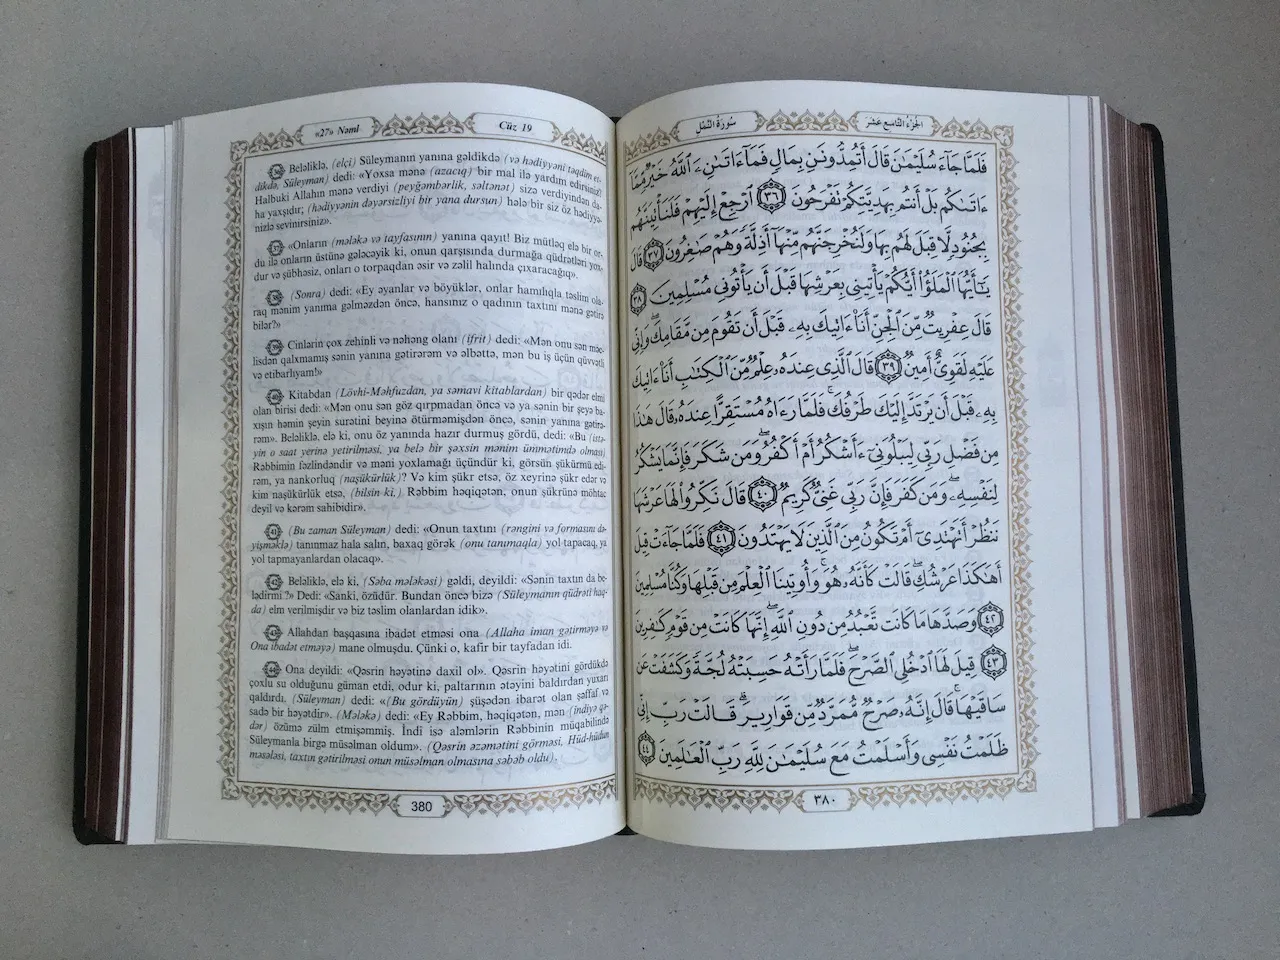 «27» Nəml
Cüz 19
36 Beləliklə, (elçi) Süleymanın yanına gəldikdə (və hədiyyəni təqdim et-
dikdə, Süleyman) dedi: «Yoxsa mənə (azacıq) bir mal ilə yardım edirsiniz?
Halbuki Allahın mənə verdiyi (peyğəmbərlik, səltənət) sizə verdiyindən da-
ha yaxşıdır; (hədiyyənin dəyərsizliyi bir yana dursun) hələ bir siz öz hədiyyə-
nizlə sevinirsiniz».
37 «Onların (mələkə və tayfasının) yanına qayıt! Biz mütləq elə bir or-
du ilə onların üstünə gələcəyik ki, onun qarşısında durmağa qüdrətləri yox-
dur və şübhəsiz, onları o torpaqdan əsir və zəlil halında çıxaracağıq».
38 (Sonra) dedi: «Ey əyanlar və böyüklər, onlar hamılıqla təslim ola-
raq mənim yanıma gəlməzdən öncə, hansınız o qadının taxtını mənə gətirə
bilər?»
39 Cinlərin çox zehinli və nəhəng olanı (ifrit) dedi: «Mən onu sən məc-
lisdən qalxmamış sənin yanına gətirərəm və əlbəttə, mən bu iş üçün qüvvətli
və etibarlıyam!»
40 Kitabdan (Lövhi-Məhfuzdan, ya səmavi kitablardan) bir qədər elmi
olan birisi dedi: «Mən onu sən göz qırpmadan öncə və ya sənin bir şeyə ba-
xışın həmin şeyin surətini beyinə ötürməmişdən öncə, sənin yanına gətirə-
rəm». Beləliklə, elə ki, onu öz yanında hazır durmuş gördü, dedi: «Bu (istə-
yin o saat yerinə yetirilməsi, ya belə bir şəxsin mənim ümmətimdə olması)
Rəbbimin fəzlindəndir və məni yoxlamağı üçündür ki, görsün şükürmü edi-
rəm, ya nankorluq (naşükürlük)? Və kim şükr etsə, öz xeyrinə şükr edər və
kim naşükürlük etsə, (bilsin ki,) Rəbbim həqiqətən, onun şükrünə möhtac
deyil və kərəm sahibidir».
41 (Bu zaman Süleyman) dedi: «Onun taxtını (rəngini və formasını də-
yişməklə) tanınmaz hala salın, baxaq görək (onu tanımaqla) yol tapacaq, ya
yol tapmayanlardan olacaq».
42 Beləliklə, elə ki, (Səba mələkəsi) gəldi, deyildi: «Sənin taxtın da be-
lədirmi?» Dedi: «Sanki, özüdür. Bundan öncə bizə (Süleymanın qüdrəti haq-
da) elm verilmişdir və biz təslim olanlardan idik».
43 Allahdan başqasına ibadət etməsi ona (Allaha iman gətirməyə və
Ona ibadət etməyə) mane olmuşdu. Çünki o, kafir bir tayfadan idi.
44 Ona deyildi: «Qəsrin həyətinə daxil ol». Qəsrin həyətini gördükdə
çoxlu su olduğunu güman etdi, odur ki, paltarının ətəyini baldırdan yuxarı
qaldırdı, (Süleyman) dedi: «(Bu gördüyün) şüşədən ibarət olan şəffaf və
sadə bir həyətdir». (Mələkə) dedi: «Ey Rəbbim, həqiqətən, mən (indiyə qə-
dər) özümə zülm etmişəmmiş. İndi isə aləmlərin Rəbbinin müqabilində
Süleymanla birgə müsəlman oldum». (Qəsrin əzəmətini görməsi, Hüd-hüdün
məsələsi, taxtın gətirilməsi onun müsəlman olmasına səbəb oldu).
380
الجُزءُ التَّاسِعَ عَشَرَ
سُورَةُ النَّمْلِ
فَلَمَّا جَآءَ سُلَيْمَٰنَ قَالَ أَتُمِدُّونَنِ بِمَالٍ فَمَآ ءَاتَىٰنِۦَ ٱللَّهُ خَيْرٌ مِّمَّآ
ءَاتَىٰكُم بَلْ أَنتُم بِهَدِيَّتِكُمْ تَفْرَحُونَ ٣٦ ٱرْجِعْ إِلَيْهِمْ فَلَنَأْتِيَنَّهُم
بِجُنُودٍ لَّا قِبَلَ لَهُم بِهَا وَلَنُخْرِجَنَّهُم مِّنْهَآ أَذِلَّةً وَهُمْ صَٰغِرُونَ ٣٧ قَالَ
يَٰٓأَيُّهَا ٱلْمَلَؤُا۟ أَيُّكُمْ يَأْتِينِى بِعَرْشِهَا قَبْلَ أَن يَأْتُونِى مُسْلِمِينَ ٣٨
قَالَ عِفْرِيتٌ مِّنَ ٱلْجِنِّ أَنَا۠ ءَاتِيكَ بِهِۦ قَبْلَ أَن تَقُومَ مِن مَّقَامِكَ ۖ وَإِنِّى
عَلَيْهِ لَقَوِىٌّ أَمِينٌ ٣٩ قَالَ ٱلَّذِى عِندَهُۥ عِلْمٌ مِّنَ ٱلْكِتَٰبِ أَنَا۠ ءَاتِيكَ
بِهِۦ قَبْلَ أَن يَرْتَدَّ إِلَيْكَ طَرْفُكَ ۚ فَلَمَّا رَءَاهُ مُسْتَقِرًّا عِندَهُۥ قَالَ هَٰذَا
مِن فَضْلِ رَبِّى لِيَبْلُوَنِىٓ ءَأَشْكُرُ أَمْ أَكْفُرُ ۖ وَمَن شَكَرَ فَإِنَّمَا يَشْكُرُ
لِنَفْسِهِۦ ۖ وَمَن كَفَرَ فَإِنَّ رَبِّى غَنِىٌّ كَرِيمٌ ٤٠ قَالَ نَكِّرُوا۟ لَهَا عَرْشَهَا
نَنظُرْ أَتَهْتَدِىٓ أَمْ تَكُونُ مِنَ ٱلَّذِينَ لَا يَهْتَدُونَ ٤١ فَلَمَّا جَآءَتْ قِيلَ
أَهَٰكَذَا عَرْشُكِ ۖ قَالَتْ كَأَنَّهُۥ هُوَ ۚ وَأُوتِينَا ٱلْعِلْمَ مِن قَبْلِهَا وَكُنَّا مُسْلِمِينَ
٤٢ وَصَدَّهَا مَا كَانَت تَّعْبُدُ مِن دُونِ ٱللَّهِ ۖ إِنَّهَا كَانَتْ مِن قَوْمٍ كَٰفِرِينَ
٤٣ قِيلَ لَهَا ٱدْخُلِى ٱلصَّرْحَ ۖ فَلَمَّا رَأَتْهُ حَسِبَتْهُ لُجَّةً وَكَشَفَتْ عَن
سَاقَيْهَا ۚ قَالَ إِنَّهُۥ صَرْحٌ مُّمَرَّدٌ مِّن قَوَارِيرَ ۗ قَالَتْ رَبِّ إِنِّى
ظَلَمْتُ نَفْسِى وَأَسْلَمْتُ مَعَ سُلَيْمَٰنَ لِلَّهِ رَبِّ ٱلْعَٰلَمِينَ ٤٤
٣٨٠